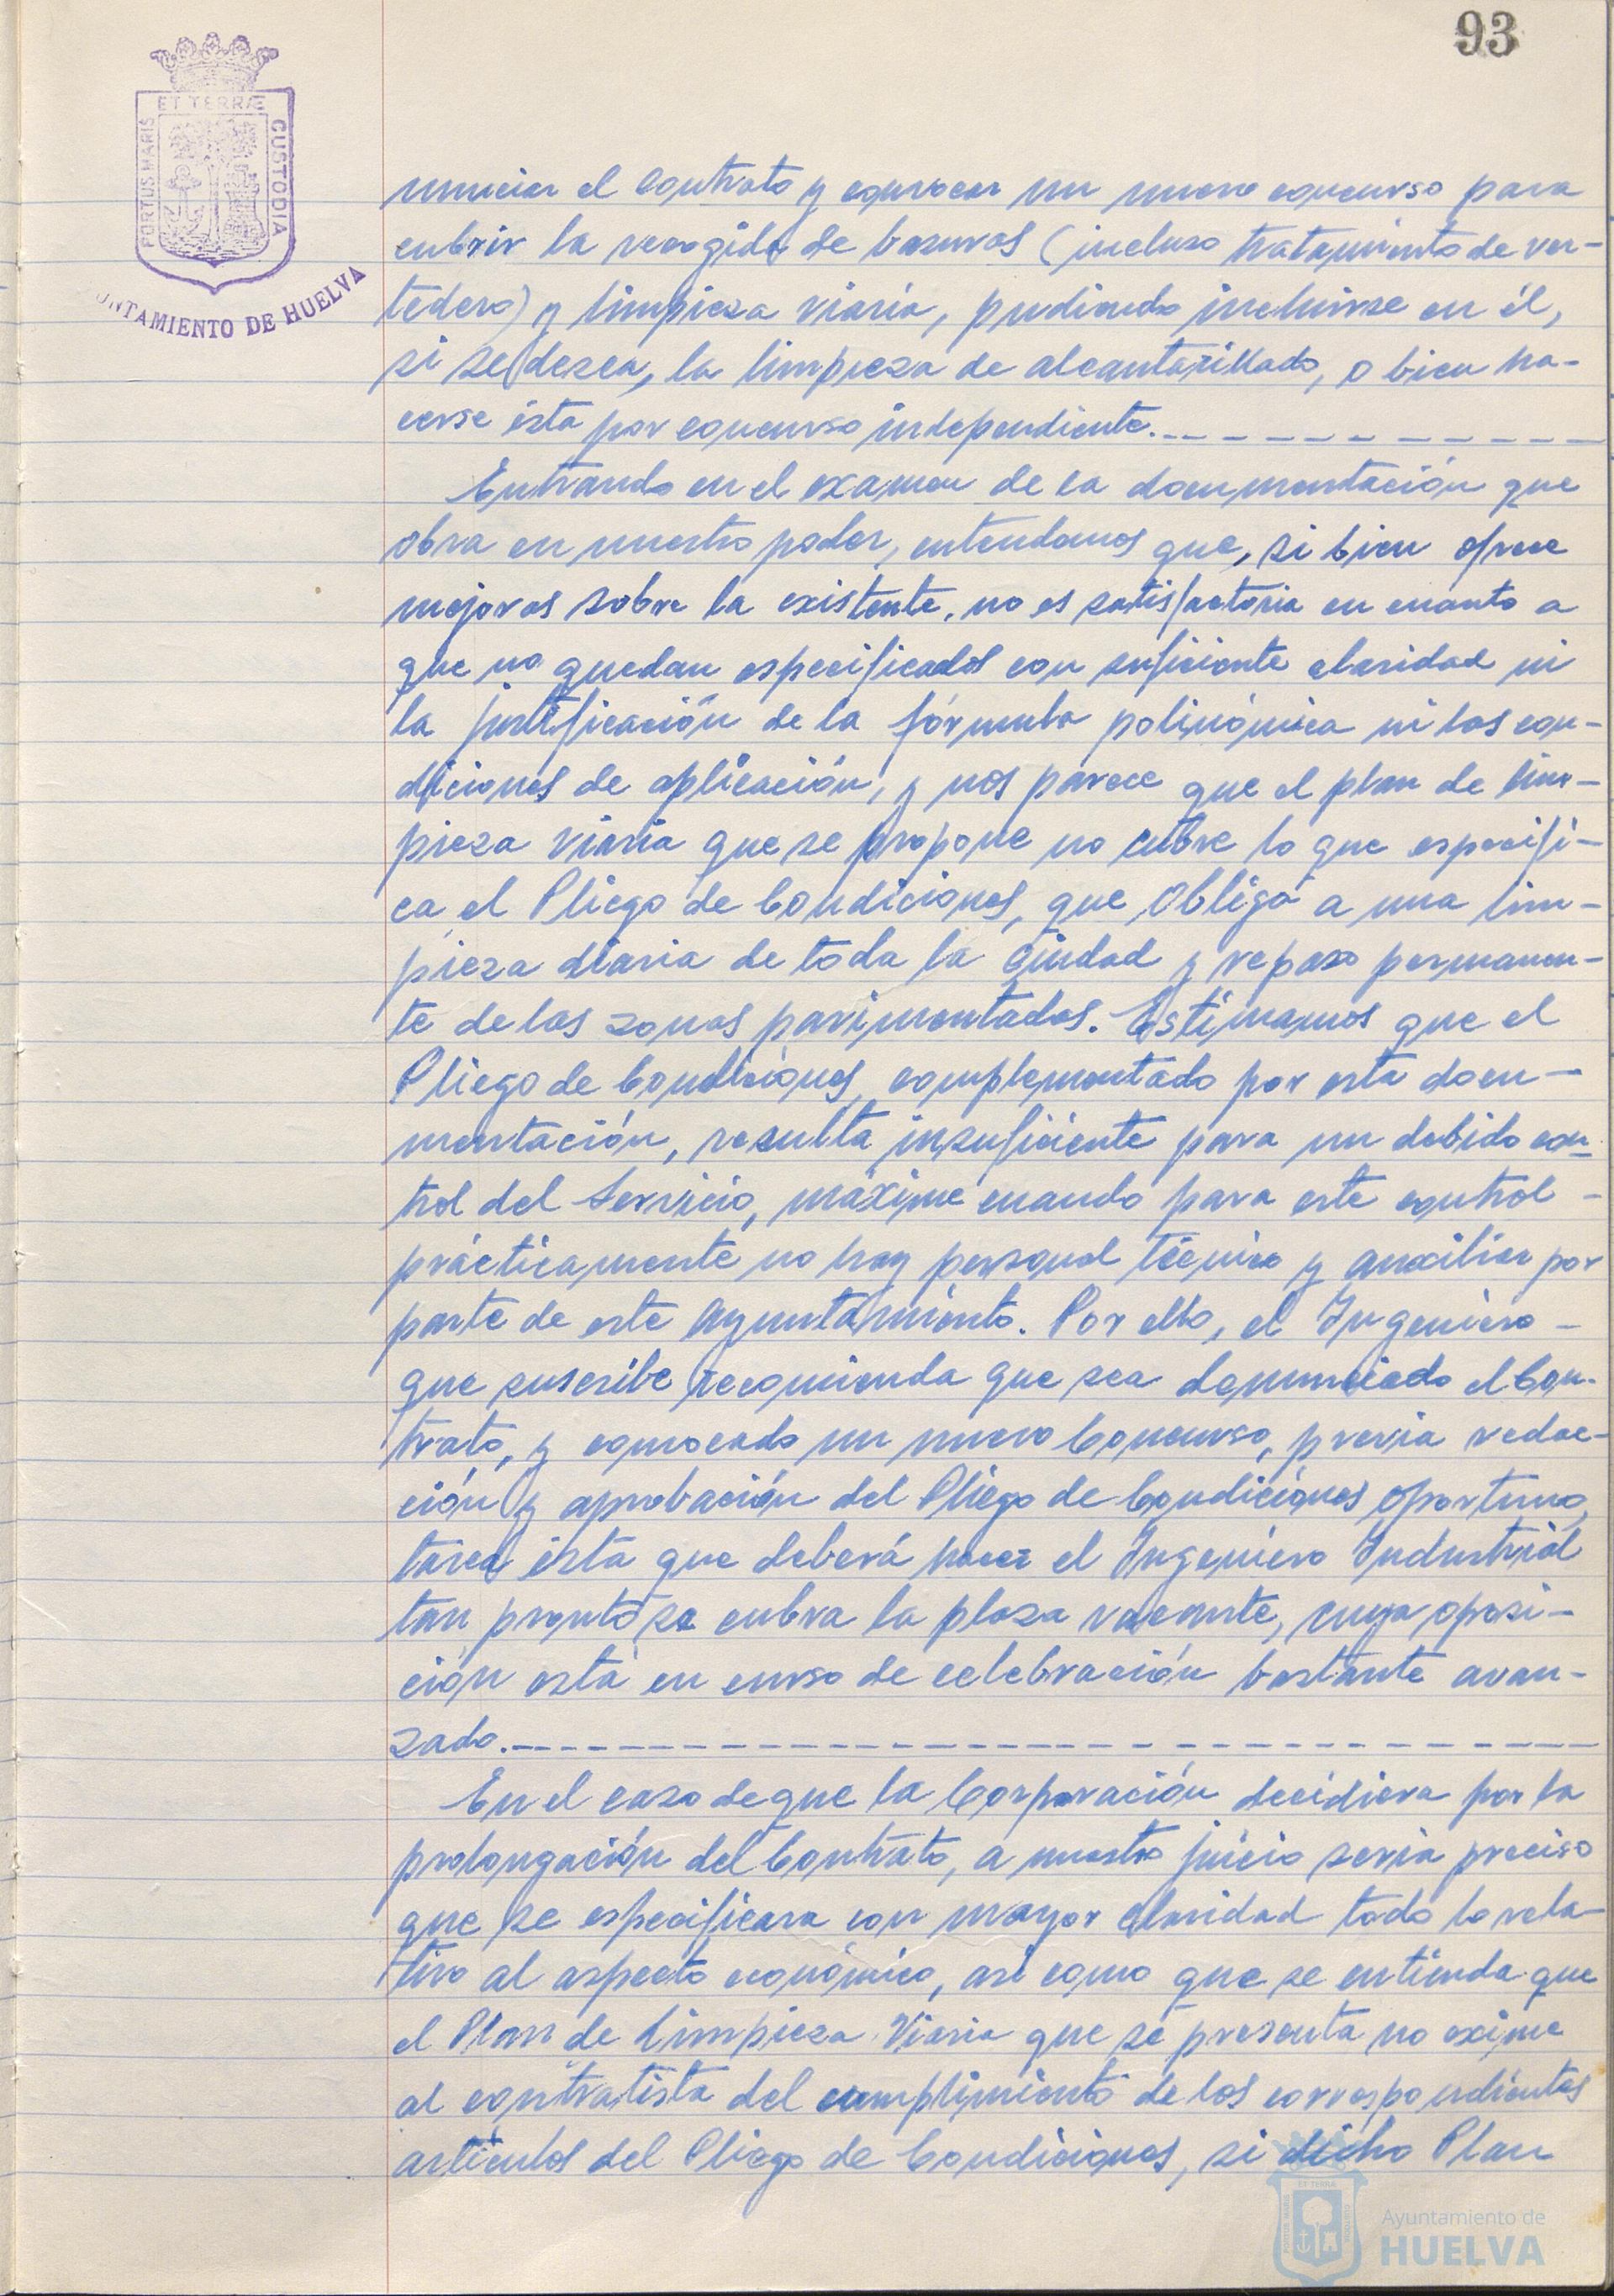 93
ET TERRÆ
PORTUS MARIS
CUSTODIA
UNTAMIENTO DE HUELVA
nunciar el contrato y convocar un nuevo concurso para
cubrir la recogida de basuras (incluso tratamiento de ver-
tedero) y limpieza viaria, pudiendo incluirse en él,
si se desea, la limpieza de alcantarillado, o bien ha-
cerse ésta por concurso independiente.
Entrando en el examen de la documentación que
obra en nuestro poder, entendemos que, si bien ofrece
mejoras sobre la existente, no es satisfactoria en cuanto a
que no quedan especificados con suficiente claridad ni
la justificación de la fórmula polinómica ni las con-
diciones de aplicación, y nos parece que el plan de lim-
pieza viaria que se propone no cubre lo que especifi-
ca el Pliego de Condiciones, que obliga a una lim-
pieza diaria de toda la ciudad y repaso permanen-
te de las zonas pavimentadas. Estimamos que el
Pliego de Condiciones, complementado por esta docu-
mentación, resulta insuficiente para un debido con-
trol del Servicio, máxime cuando para este control -
prácticamente no hay personal técnico y auxiliar por
parte de este Ayuntamiento. Por ello, el Ingeniero -
que suscribe recomienda que sea denunciado el Con-
trato, y convocado un nuevo Concurso, previa redac-
ción y aprobación del Pliego de Condiciones oportuno,
tarea ésta que deberá hacer el Ingeniero Industrial
tan pronto se cubra la plaza vacante, cuya oposi-
ción está en curso de celebración bastante avan-
zado.
En el caso de que la Corporación decidiera por la
prolongación del Contrato, a nuestro juicio sería preciso
que se especificara con mayor claridad todo lo rela-
tivo al aspecto económico, así como que se entienda que
el Plan de Limpieza Viaria que se presenta no exime
al contratista del cumplimiento de los correspondientes
artículos del Pliego de Condiciones, si dicho Plan
Ayuntamiento de
HUELVA